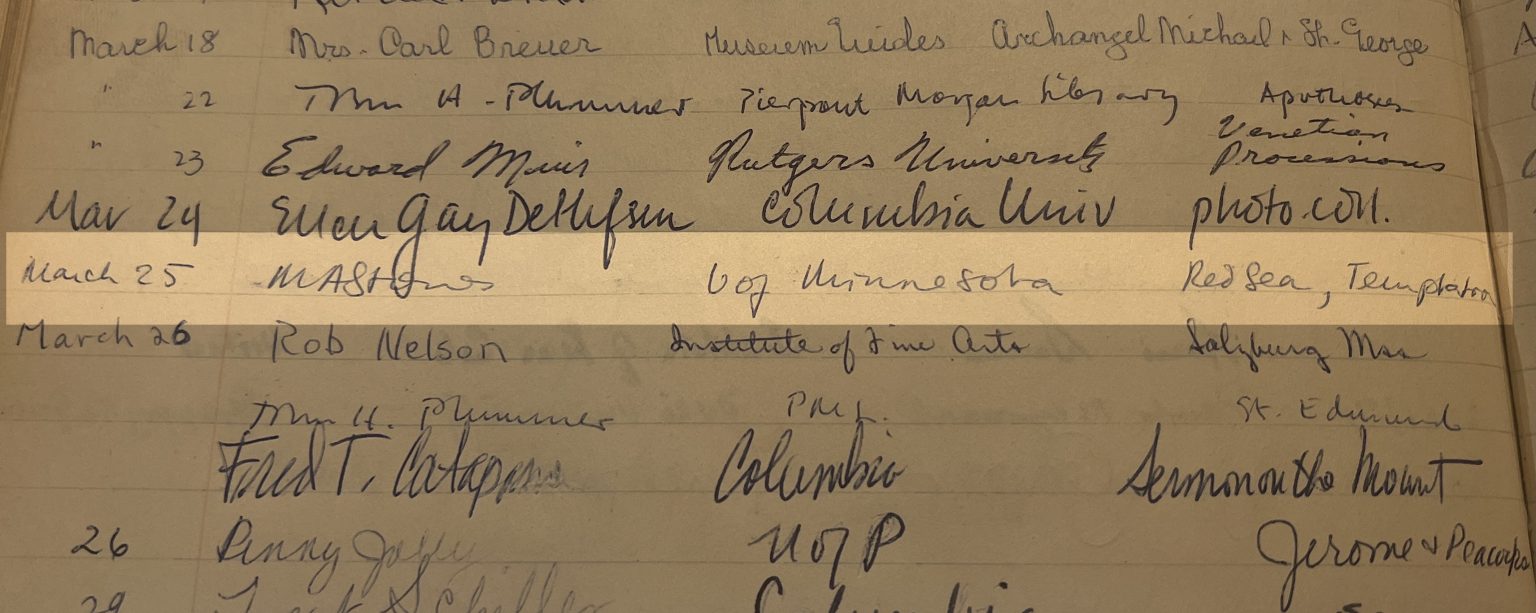 March 18 Mrs. Carl Breuer Museum Guides Archangel Michael + St. George
" 22 H. Plummer Pierpont Morgan Library Apotheosis
" 23 Edward Muir Rutgers University Venetian Processions
Mar 24 Ellen Gay Detlefsen Columbia Univ photo. coll.
March 25 U of Minnesota Red Sea, Temptation
March 26 Rob Nelson Institute of Fine Arts Salzburg Mss
H. Plummer PML. St. Edmund
Fred T. Columbia Sermon on the Mount
26 Penny Jolly U of P Jerome + Peacocks
29 Schiller Columbia